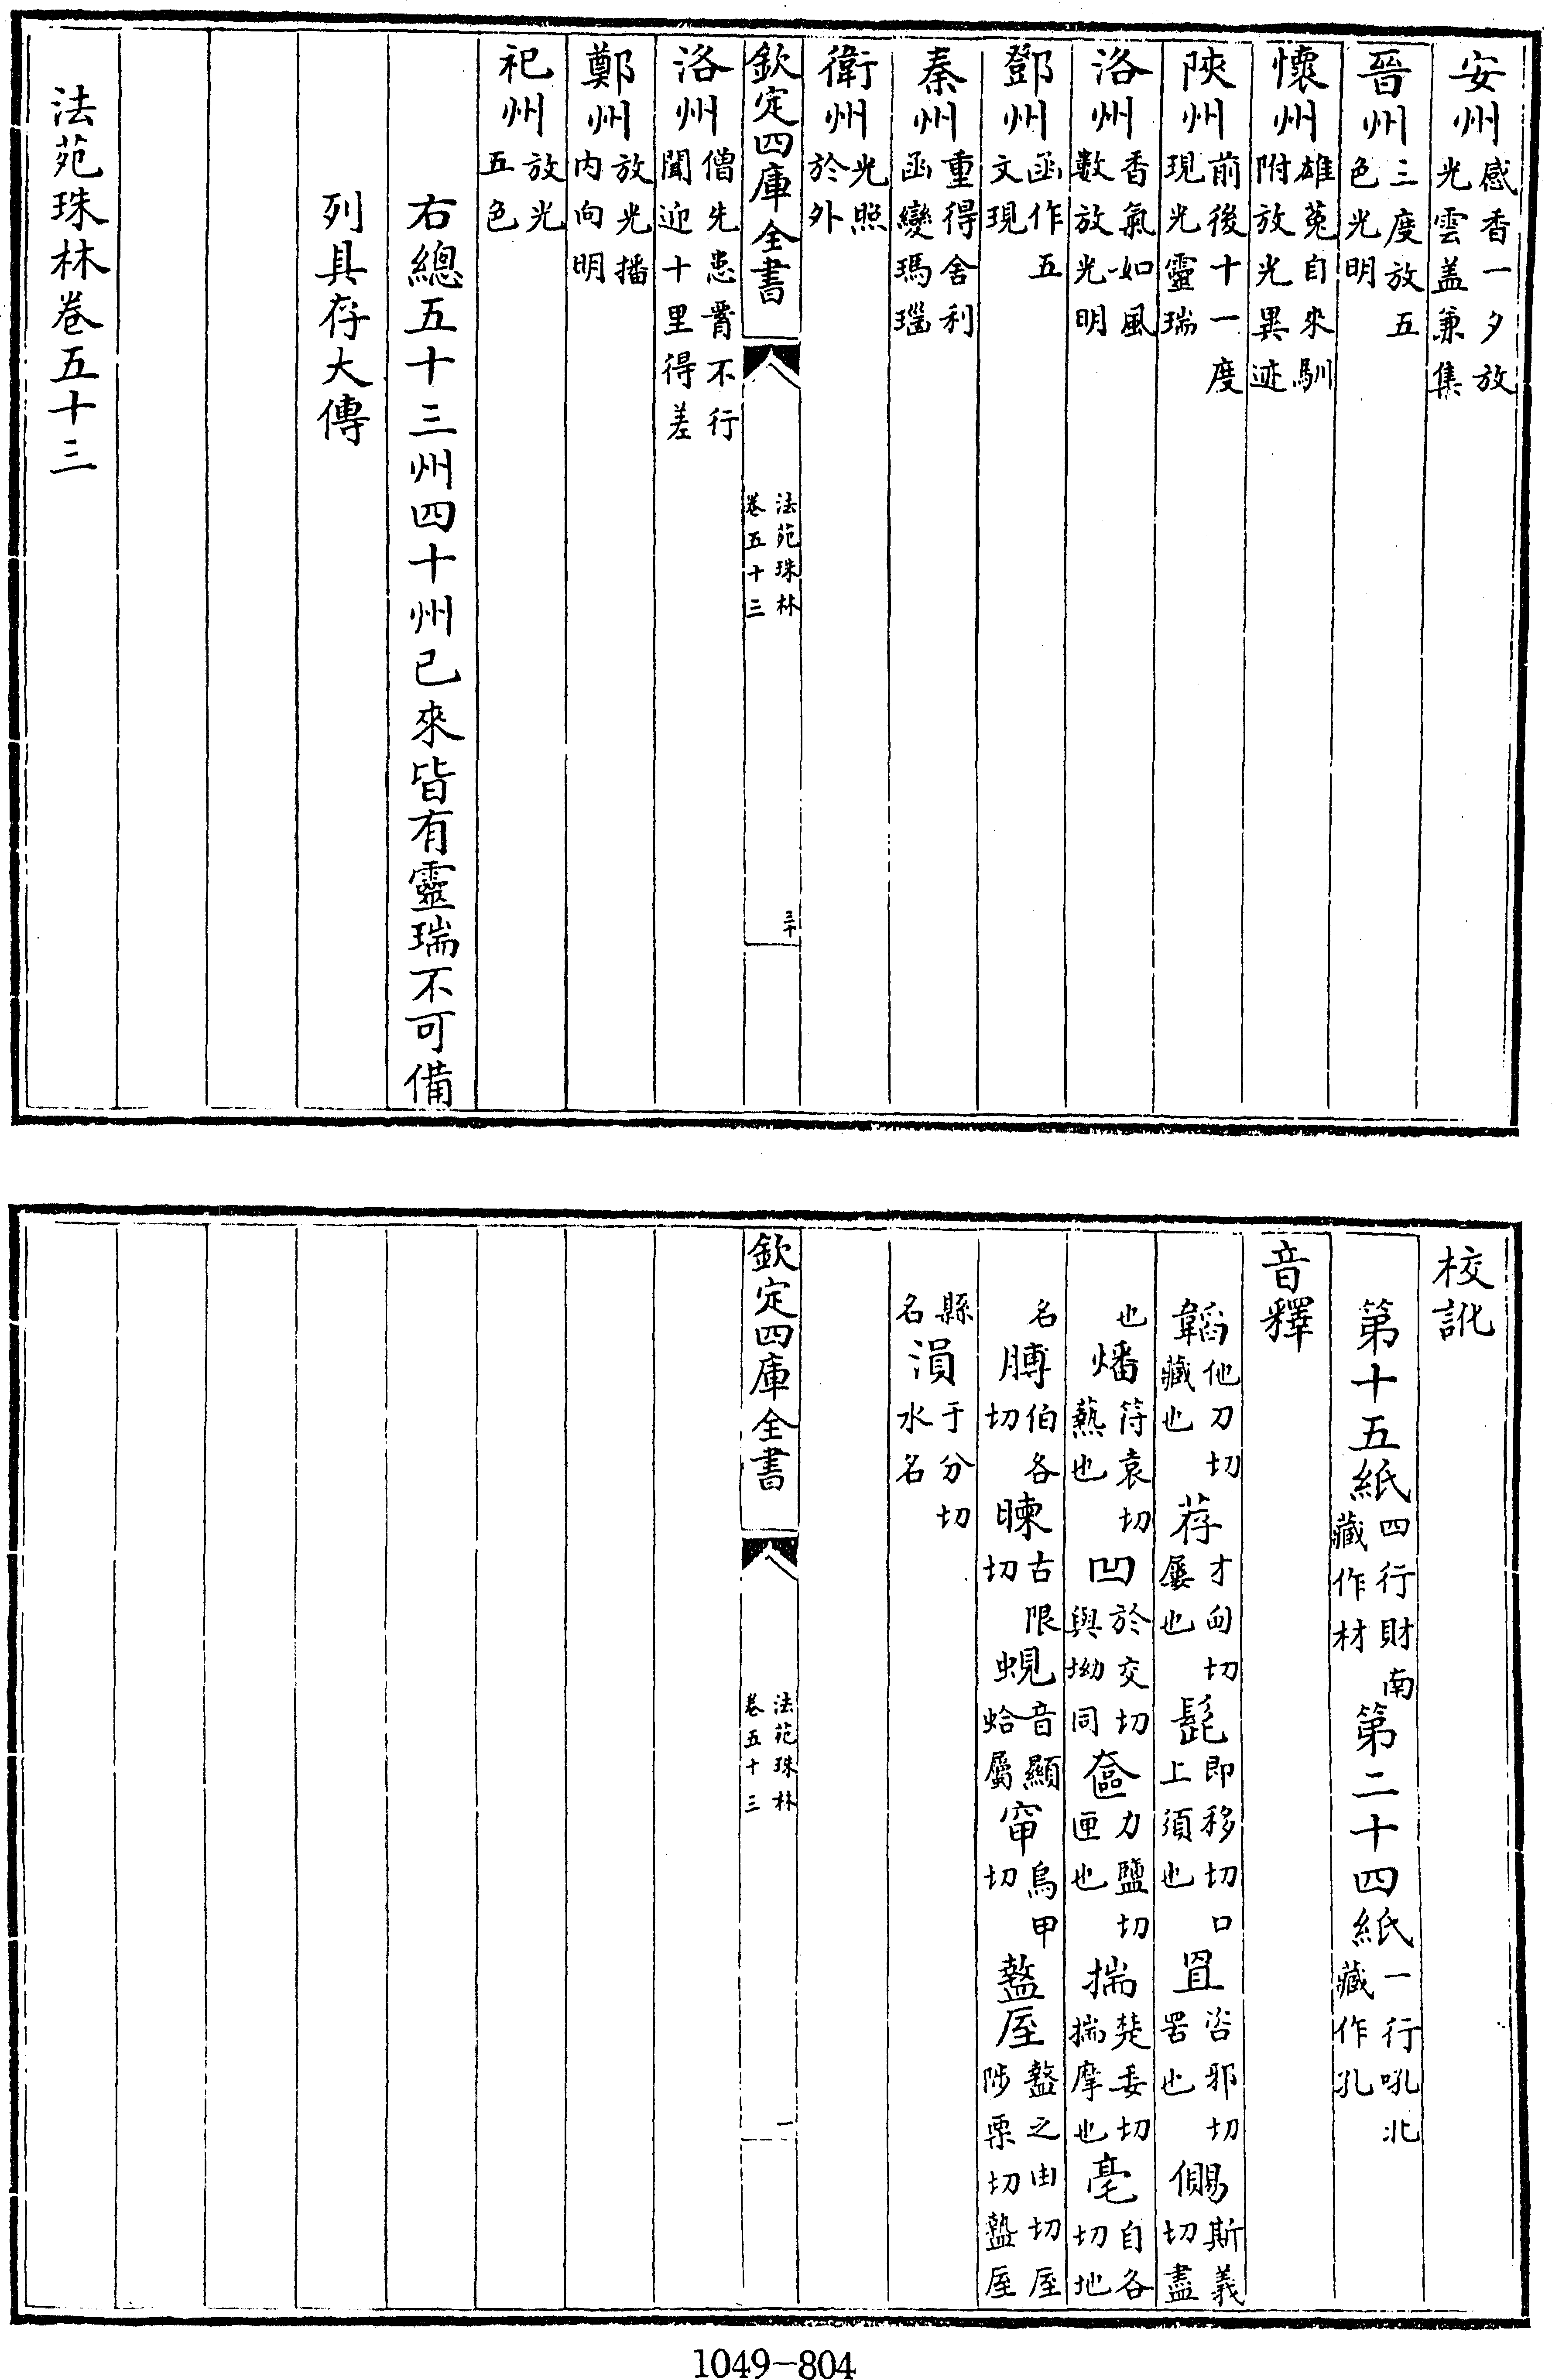 安州感香一夕放光雲盖兼集
晉州三度放五色光明
懷州雄菟自來馴附放光異迹
陜州前後十一度現光靈瑞
洛州香氣如風數放光明
鄧州函作五文現
秦州重得舍利函變瑪瑙
衛州光照於外
欽定四庫全書 法苑珠林卷五十三 三十
洛州僧先患胷不行聞迎十里得差
鄭州放光播内向明
祀州放光五色
右總五十三州四十州已來皆有靈瑞不可備
列具存大傳
法苑珠林卷五十三
校訛
第十五紙四行財南藏作材 第二十四紙一行吼北藏作孔
音釋
韜他刀切藏也 荐才甸切屢也 髭即移切口上須也 罝咨邪切罟也 儩斯義切盡
也 燔符袁切爇也 凹於交切與坳同 奩力鹽切匣也 揣楚委切揣摩也 亳自各切地
名 膊伯各切 暕古限切 蜆音顯蛤屬 窜烏甲切 盩厔盩之由切厔陟栗切盩厔
縣名 溳于分切水名
欽定四庫全書 法苑珠林卷五十三 一
1049-804